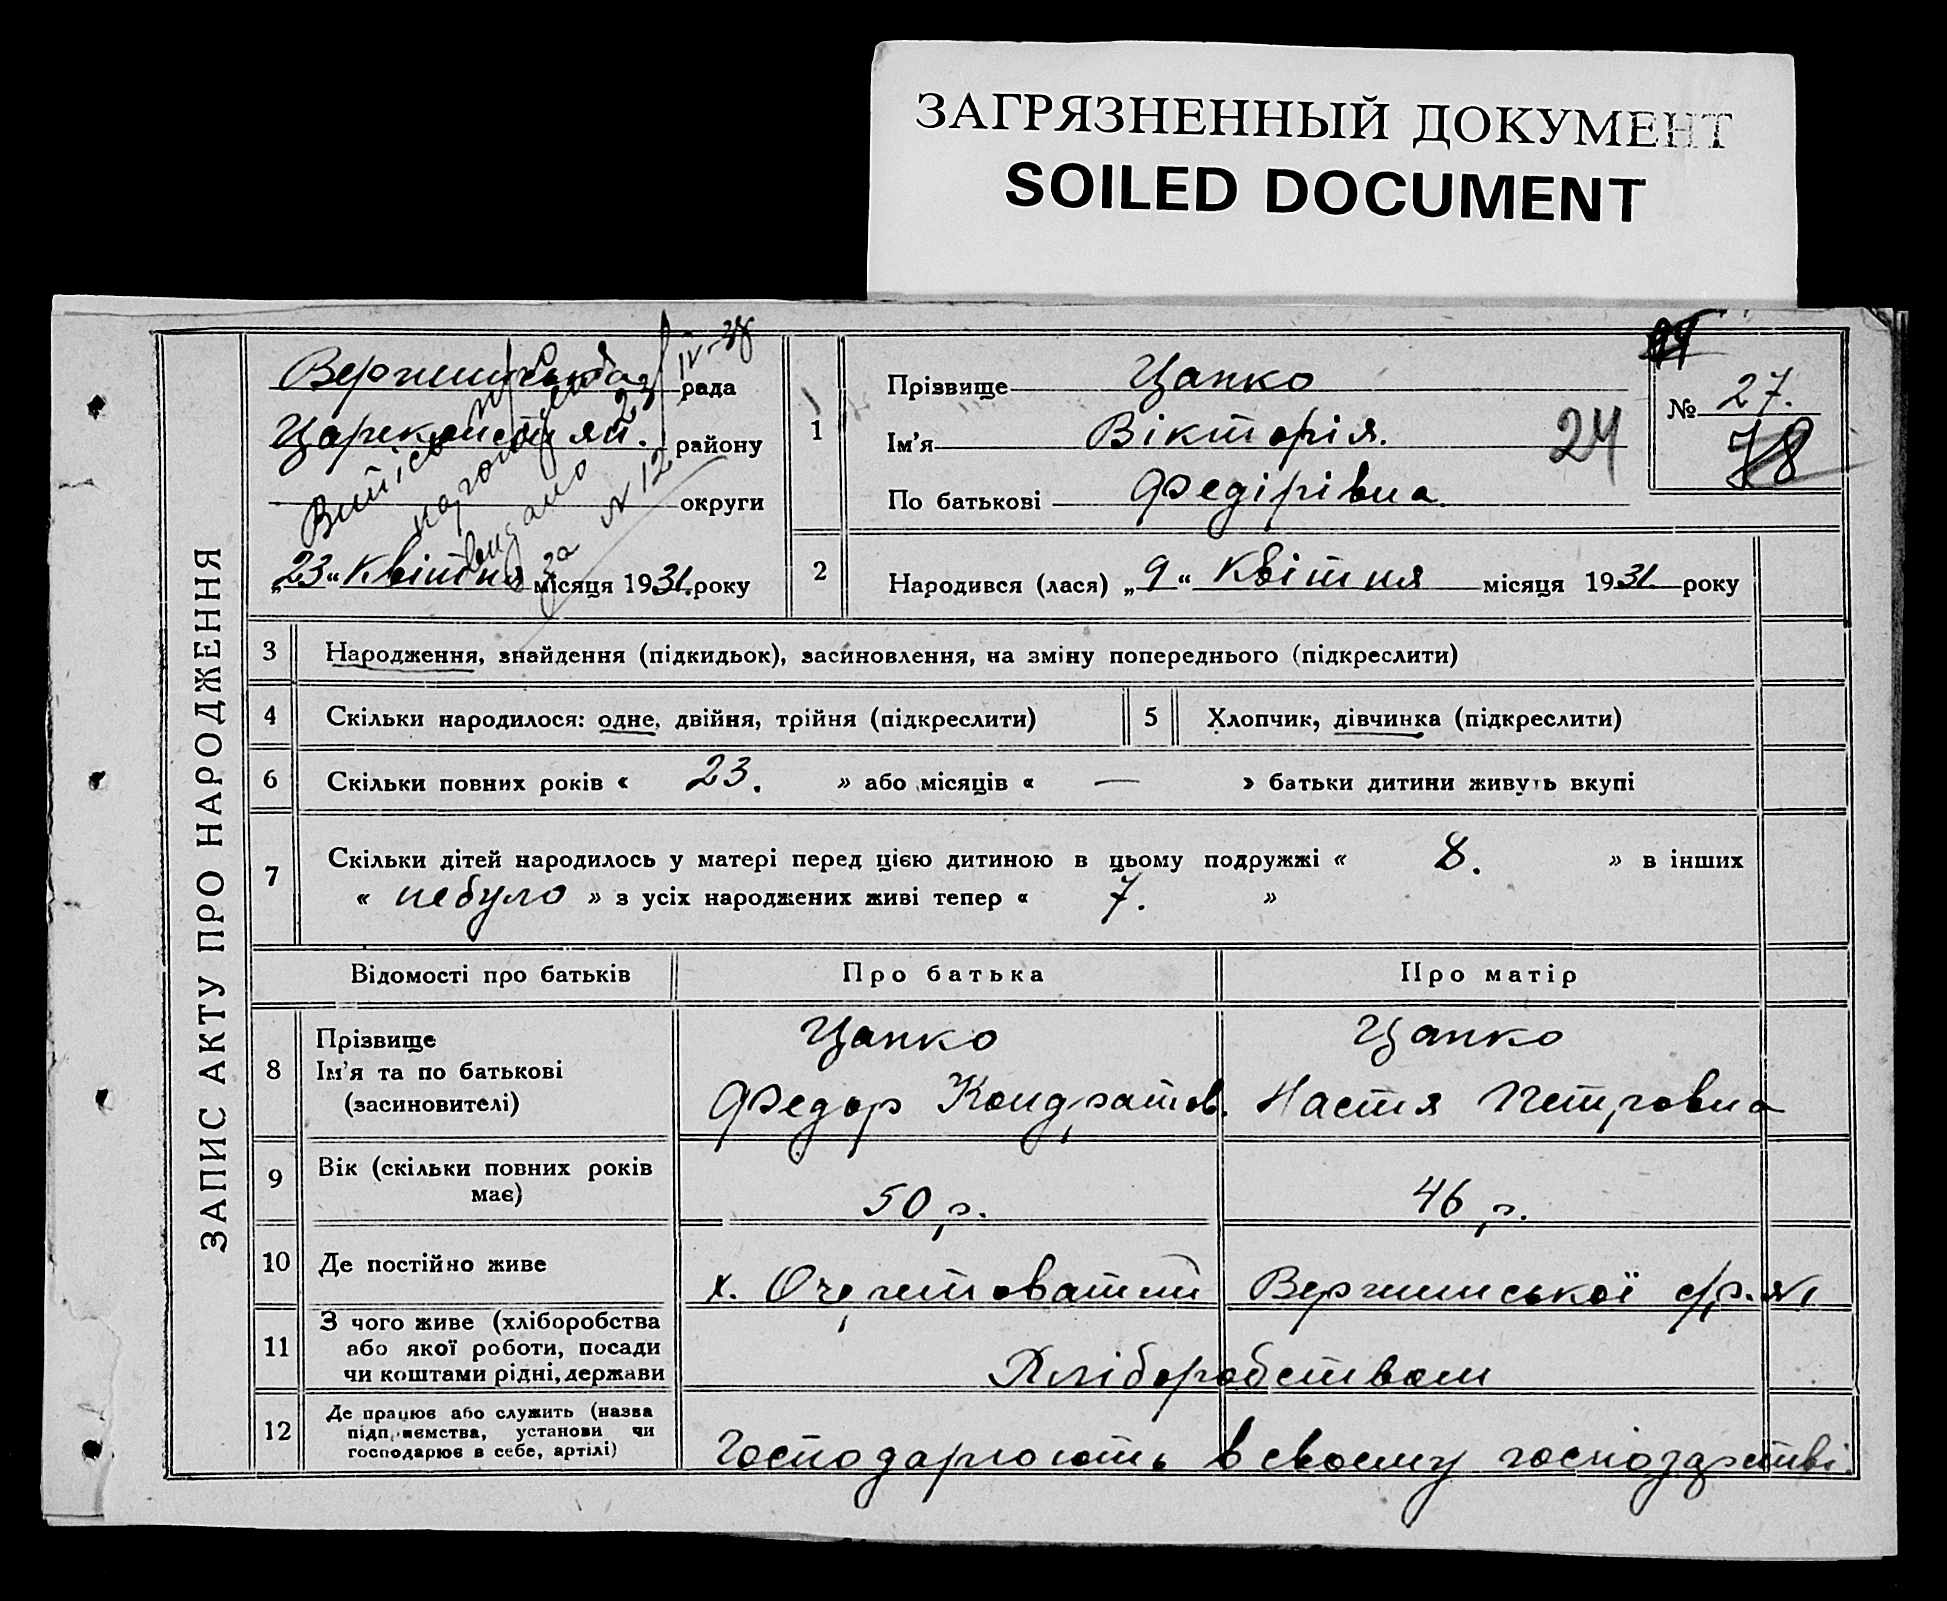 ЗАГРЯЗНЕННЫЙ ДОКУМЕНТ
SOILED DOCUMENT
ЗАПИС АКТУ ПРО НАРОДЖЕННЯ
рада
району
округи
„23“ Квітня місяця 1931. року
за № 12
1
Прізвище Цапко
Ім’я Вікторія.
По батькові Федірівна
24
№ 27.
78
2
Народився (лася) „9“ Квітня місяця 1931 року
3 Народження, знайдення (підкидьок), засиновлення, на зміну попереднього (підкреслити)
4 Скільки народилося: одне, двійня, трійня (підкреслити)
5 Хлопчик, дівчинка (підкреслити)
6 Скільки повних років « 23. » або місяців « — » батьки дитини живуть вкупі
7 Скільки дітей народилось у матері перед цією дитиною в цьому подружжі « 8. » в інших
« небуло » з усіх народжених живі тепер « 7. »
Відомості про батьків Про батька Про матір
8 Прізвище
Ім’я та по батькові
(засиновителі)
Цапко
Федор Кондратов.
Цапко
Настя Петровна
9 Вік (скільки повних років
має)
50 р.
46 р.
10 Де постійно живе
х. Очеретоватий Вершинської с/р.
11 З чого живе (хліборобства
або якої роботи, посади
чи коштами рідні, держави
Хліборобством
12 Де працює або служить (назва
підприємства, установи чи
господарює в себе, артілі)
Господарюють в своему господрстві.